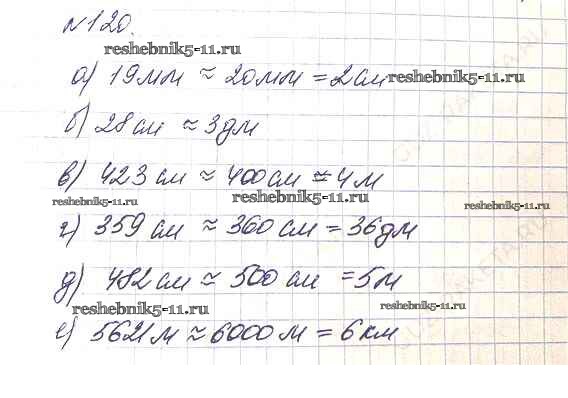 №120.
reshebnik5-11.ru
а) 19 мм ≈ 20 мм = 2 см reshebnik5-11.ru
б) 28 см ≈ 3 дм
в) 423 см ≈ 400 см = 4 м
reshebnik5-11.ru reshebnik5-11.ru reshebnik5-11.ru
г) 359 см ≈ 360 см = 36 дм
д) 482 см ≈ 500 см = 5 м
reshebnik5-11.ru reshebnik5-11.ru
е) 5621 м ≈ 6000 м = 6 км